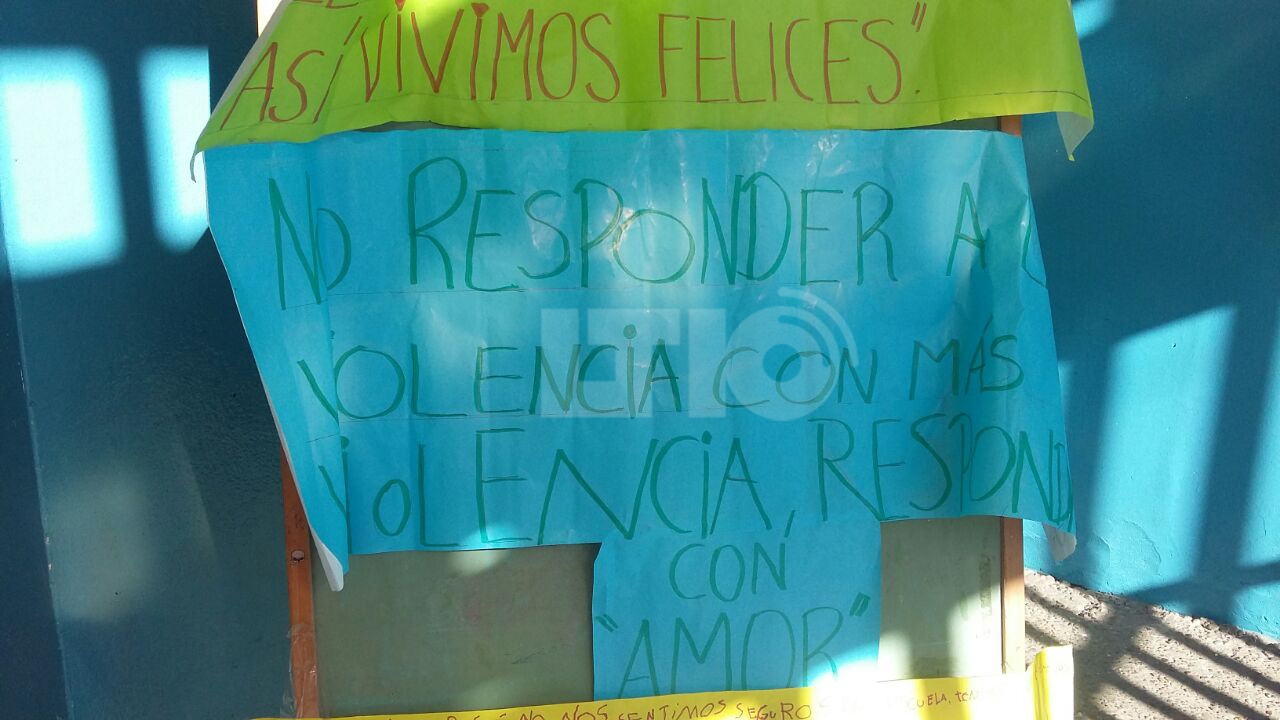 ASÍ VIVIMOS FELICES".
NO RESPONDER A
VIOLENCIA CON MÁS
VIOLENCIA, RESPOND
CON
"AMOR"
NO NOS SENTIMOS SEGURO